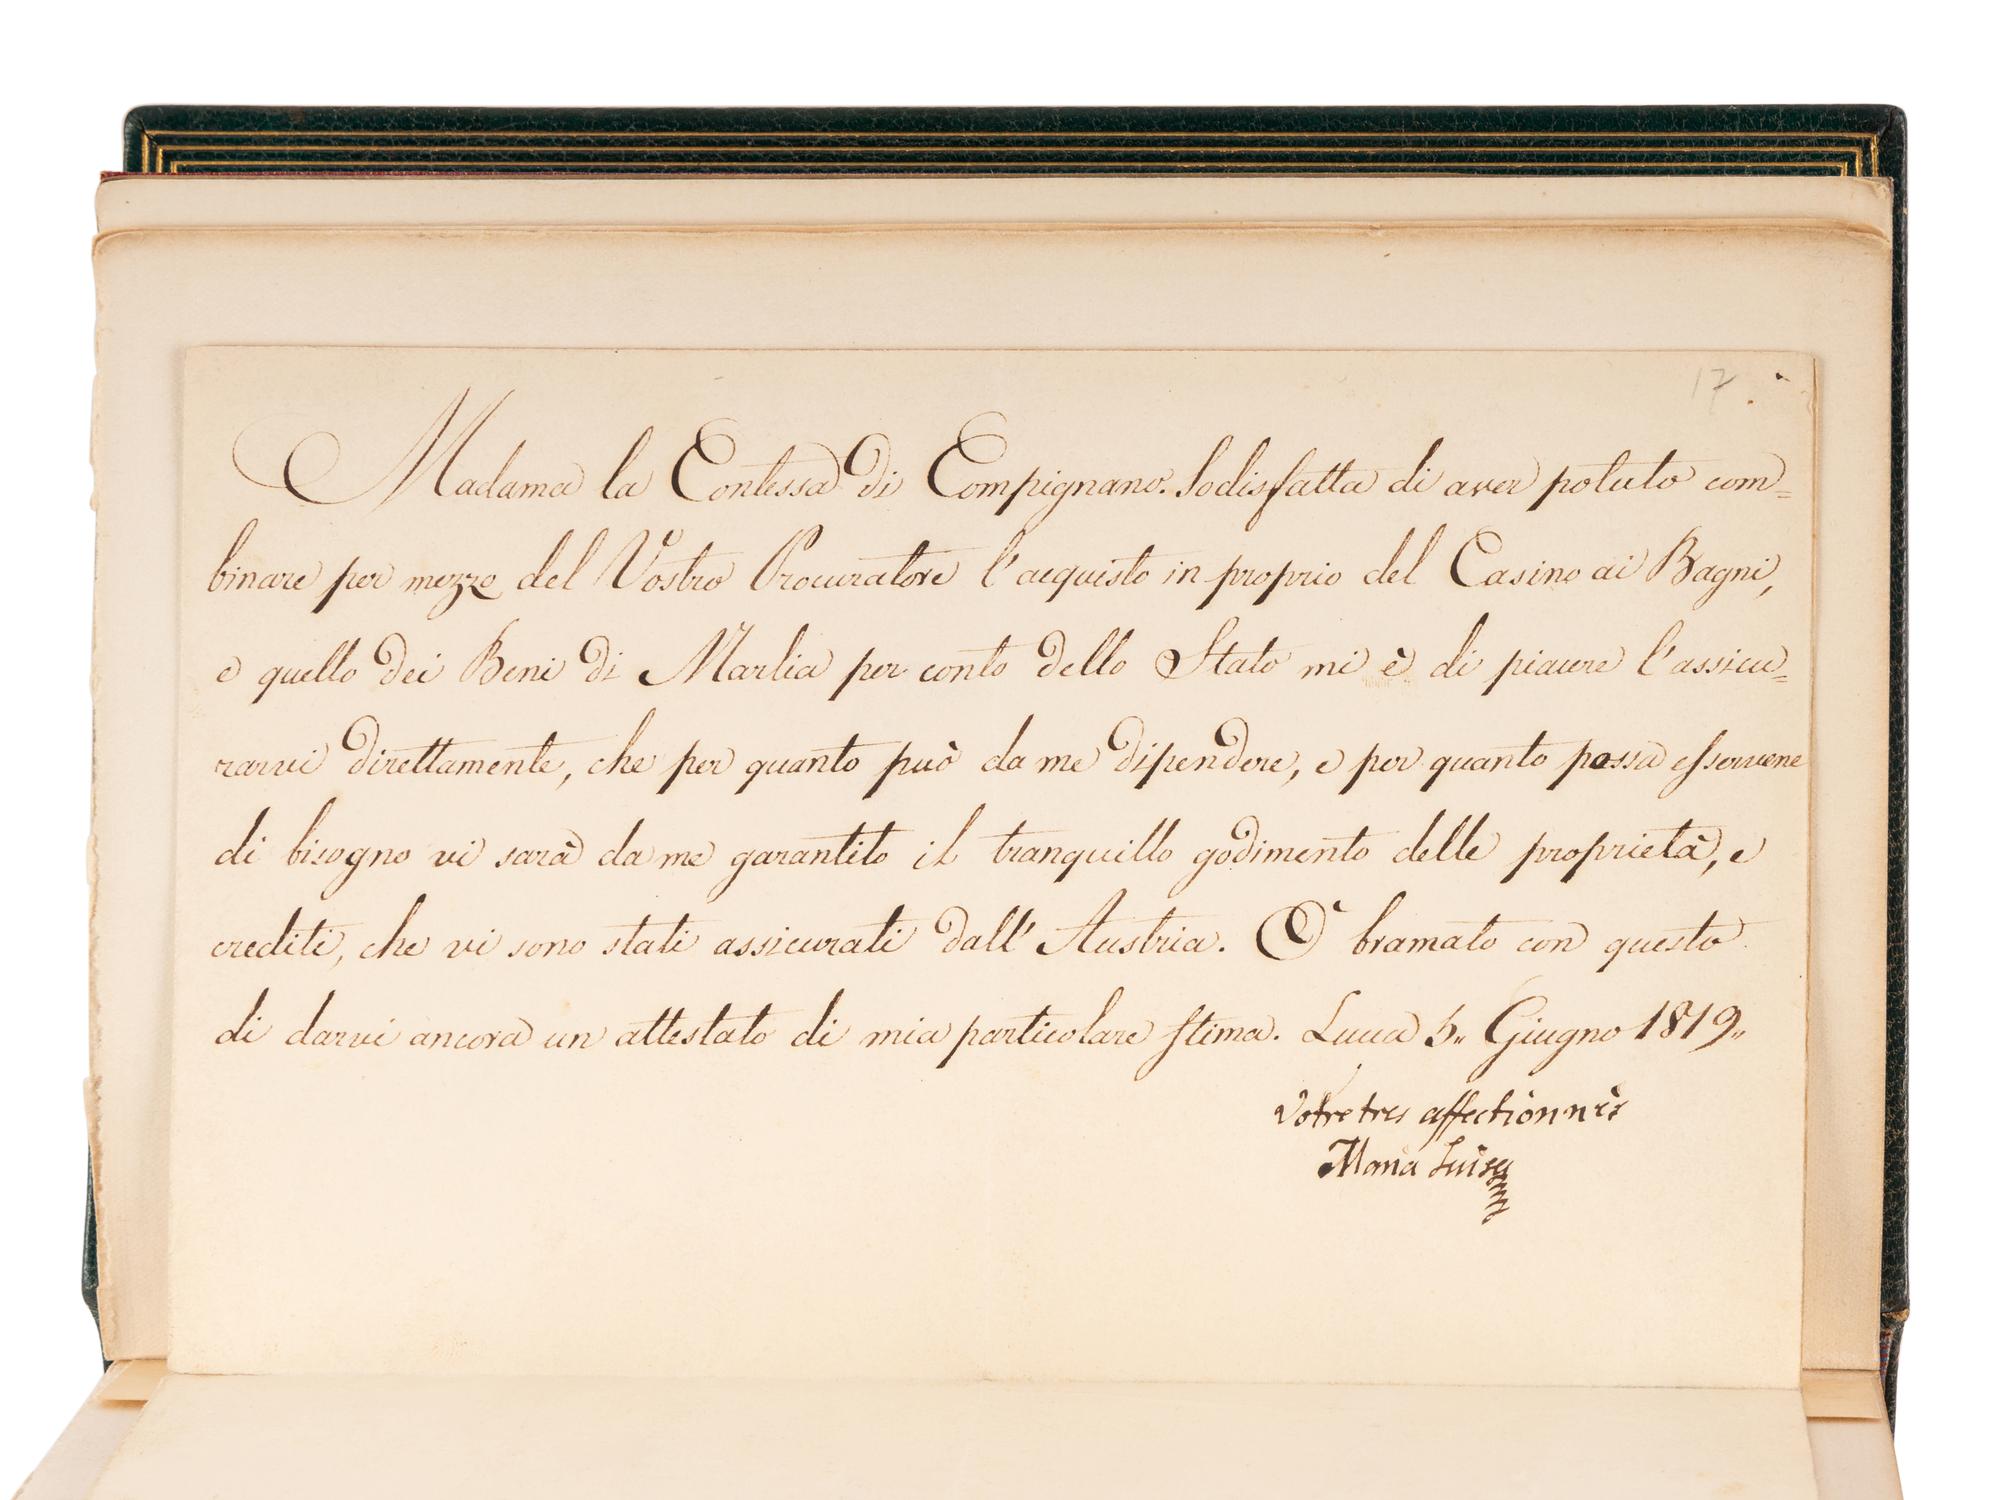 17.
Madama la Contessa di Compignano. Sodisfatta di aver potuto com=
binare per mezzo del Vostro Procuratore l'acquisto in proprio del Casino ai Bagni,
e quello dei Beni di Marlia per conto dello Stato mi è di piacere l'assicu=
rarvi direttamente, che per quanto può da me dipendere, e per quanto possa esservene
di bisogno vi sarà da me garantito il tranquillo godimento delle proprietà, e
crediti, che vi sono stati assicurati dall'Austria. Ò bramato con questo
di darvi ancora un attestato di mia particolare stima. Lucca 5,, Giugno 1819,,
Votre tres affectionnèe
Maria Luisa